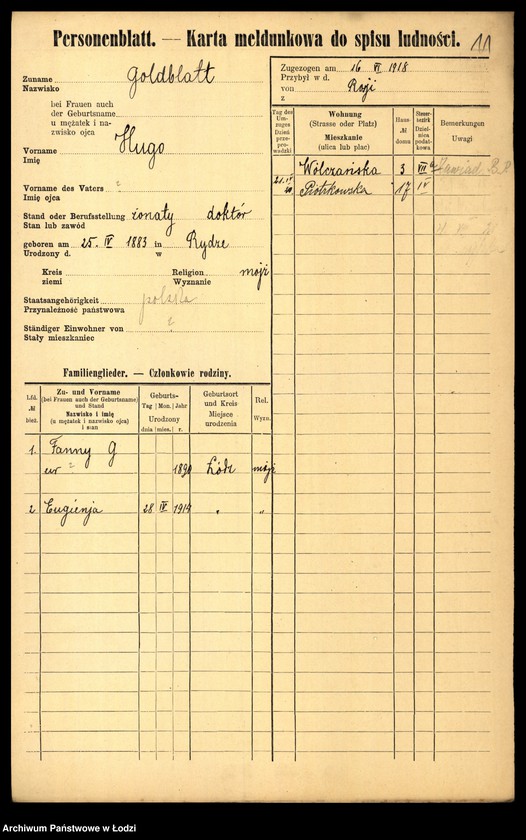 Personenblatt. — Karta meldunkowa do spisu ludności.
11
Zuname Goldblatt
Nazwisko
bei Frauen auch
der Geburtsname
u mężatek i na-
zwisko ojca
Vorname Hugo
Imię
Vorname des Vaters ?
Imię ojca
Stand oder Berufsstellung żonaty doktór
Stan lub zawód
geboren am 25. IV 1883 in Rydze
Urodzony d. w
Kreis Religion mojż
ziemi Wyznanie
Staatsangehörigkeit polska
Przynależność państwowa
Ständiger Einwohner von ?
Stały mieszkaniec
Zugezogen am 16 VI 1918
Przybył w d.
von Rosji
z
Tag des Um-zuges
Dzień prze-prowadzki
Wohnung
(Strasse oder Platz)
Mieszkanie
(ulica lub plac)
Haus-
№
domu
Steuer-bezirk
Dziel-nica podat-kowa
Bemerkungen
Uwagi
Wólczańska 3 VIII
Piotrkowska 17 IV
Familienglieder. — Członkowie rodziny.
Lfd.
№
bież.
Zu- und Vorname
(bei Frauen auch der Geburtsname)
und Stand
Nazwisko i imię
(u mężatek i nazwisko ojca)
i stan
Geburts-
Tag Mon. Jahr
Urodzony
dnia mies. r.
Geburtsort
und Kreis
Miejsce
urodzenia
Rel.
Wyzn.
1. Fanny G
ur ? 1890 Łódź mojż
2 Eugienja 28 IV 1914 " "
Archiwum Państwowe w Łodzi